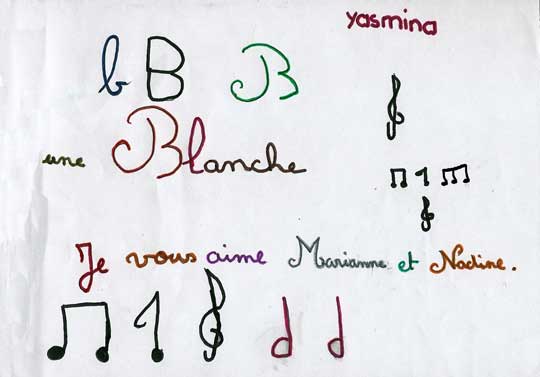 yasmina
b B B
une Blanche
Je vous aime Marianne et Nadine.